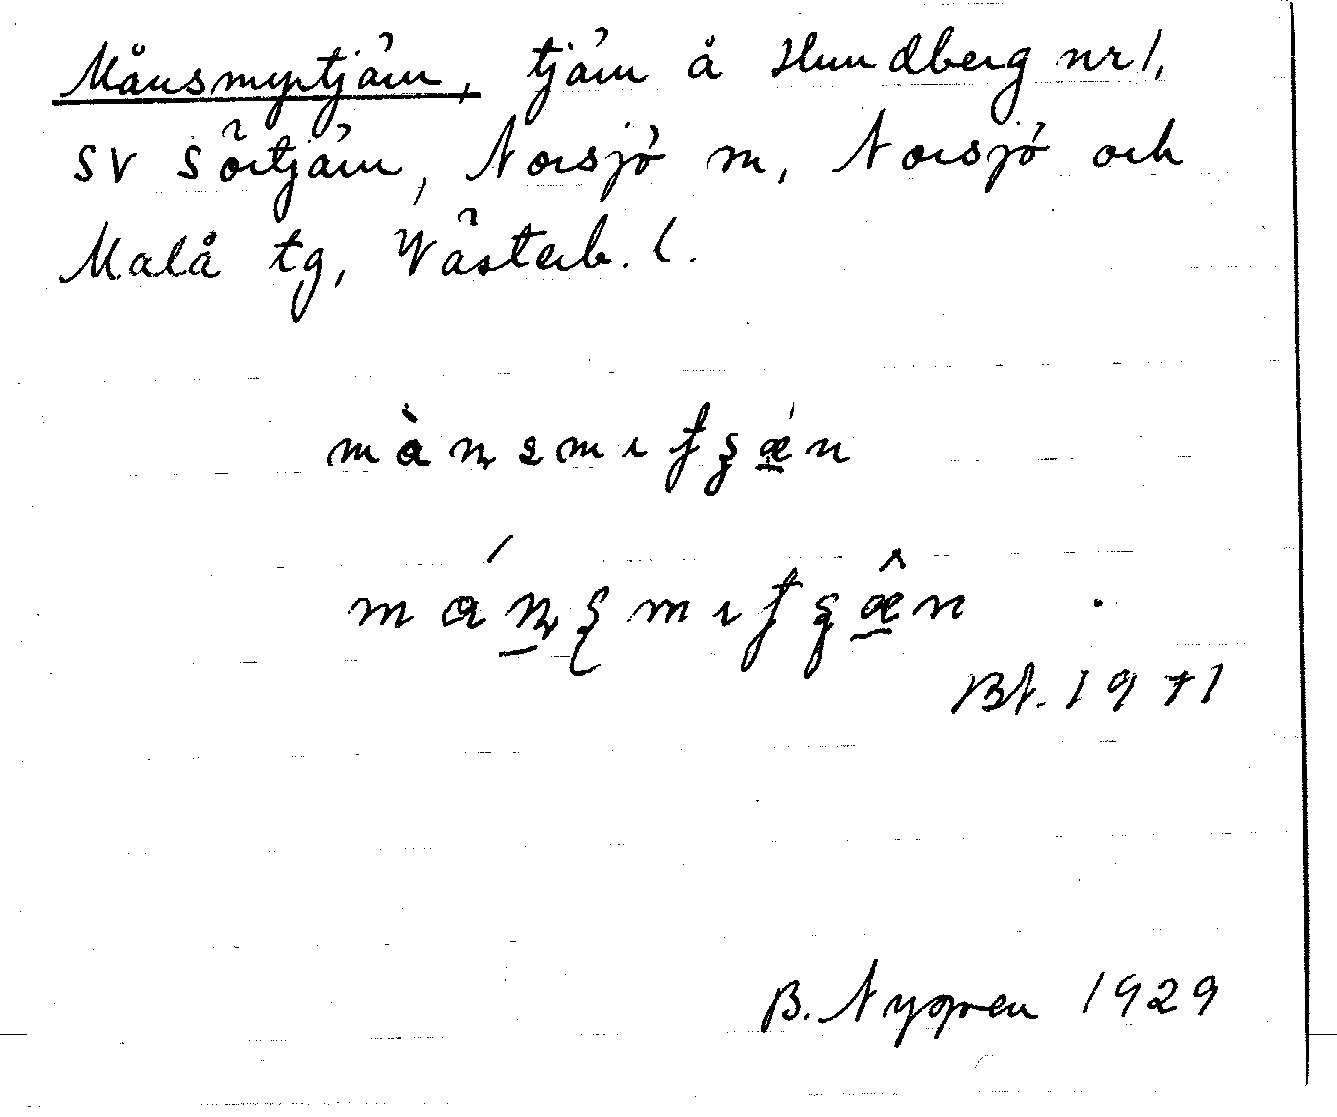 Månsmyrtjärn, tjärn å Hundberg nr 1,
SV Sörtjärn, Norsjö sn, Norsjö och
Malå tg, Västerb. l.
BN. 1971
B. Nygren 1929